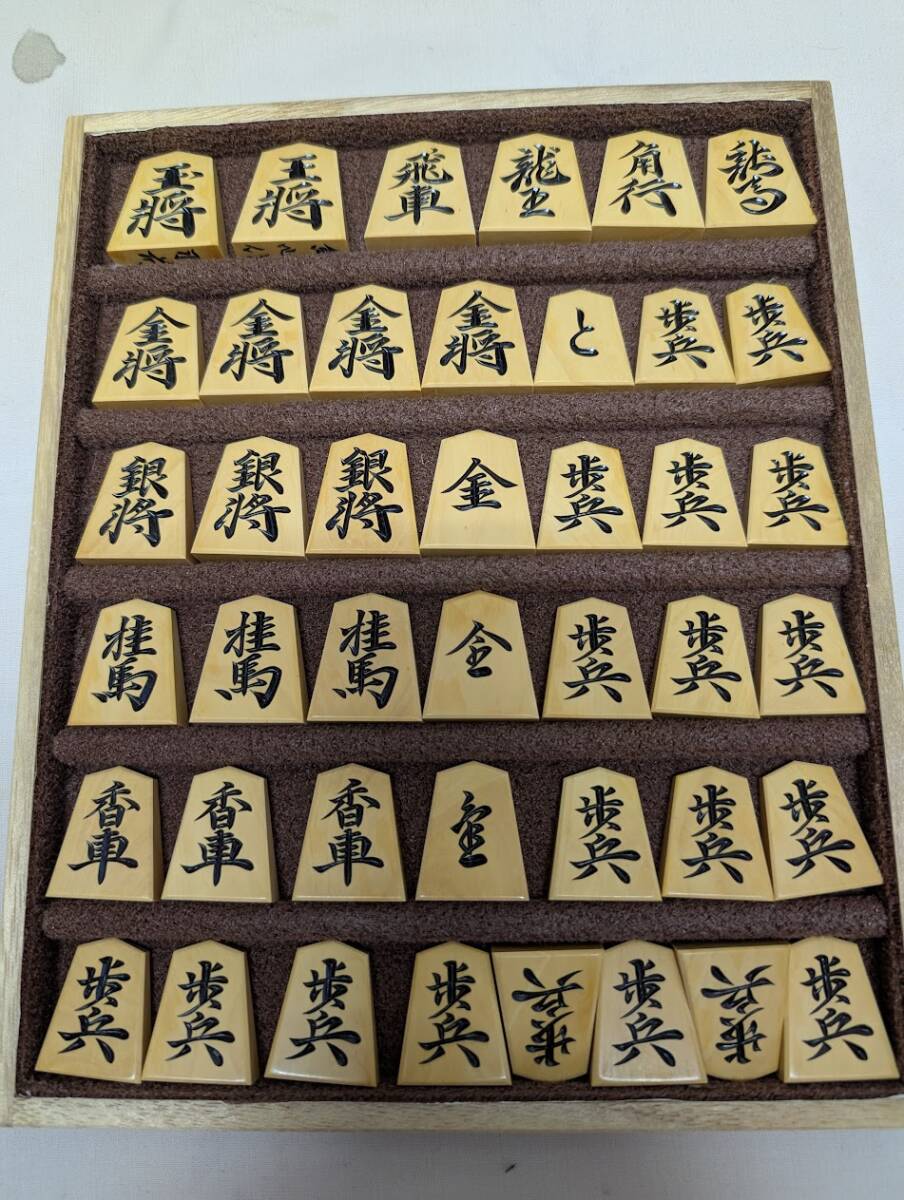 玉将 王将 飛車 龍王 角行 龍馬
金将 金将 金将 金将 と 歩兵 歩兵
銀将 銀将 銀将 金 歩兵 歩兵 歩兵
桂馬 桂馬 桂馬 全 歩兵 歩兵 歩兵
香車 香車 香車 歩兵 歩兵 歩兵
歩兵 歩兵 歩兵 歩兵 歩兵 歩兵 歩兵 歩兵